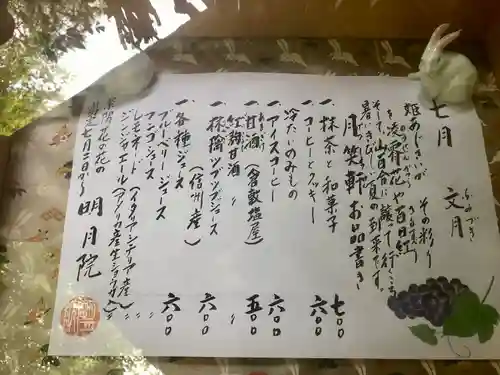 七月 文月
ふみづき
姫あじさいが その彩り
を 凌霄花や百日紅
そして山百合に譲って行くころ
暑いきびしい夏の到来です。
月笑軒 お品書き
一、抹茶と和菓子 七〇〇
一、コーヒーとクッキー 六〇〇
冷たいのみもの
一、アイスコーヒー 六〇〇
一、甘酒（倉敷塩屋） 五〇〇
紅麹甘酒 〃
一、林檎ツブツブジュース（信州産） 六〇〇
一、各種ジュース 六〇〇
ブルーベリージュース 〃
アンズジュース 〃
レモネード（イタリア シチリア産） 〃
ジンジャエール（アメリカ産生ショウガ） 〃
七月二日から
明月院